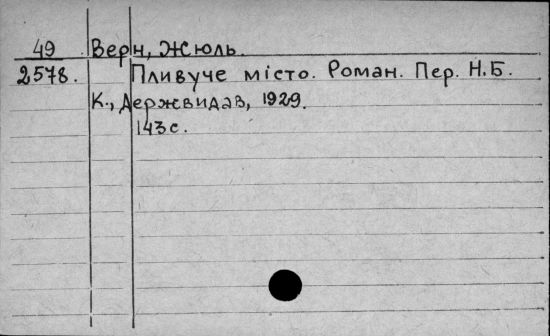 49 Верн, Жюль.
2578. Пливуче місто. Роман. Пер. Н.Б.
К., Держвидав, 1929.
143 с.